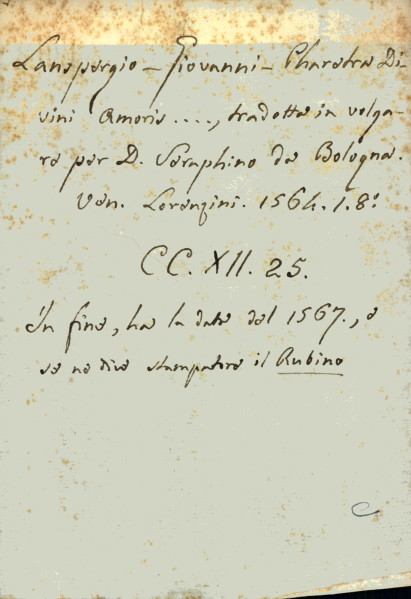 Lanspergio - Giovanni - Pharetra Di-
vini Amoris ...., tradotta in volga-
re per D. Seraphino da Bologna.
Ven. Lorenzini. 1564. 1.8º
CC. XII. 25.
In fine, ha la data del 1567., e
se ne dice stampatore il Rubino